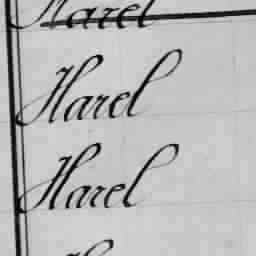 Harel
Harel
Harel